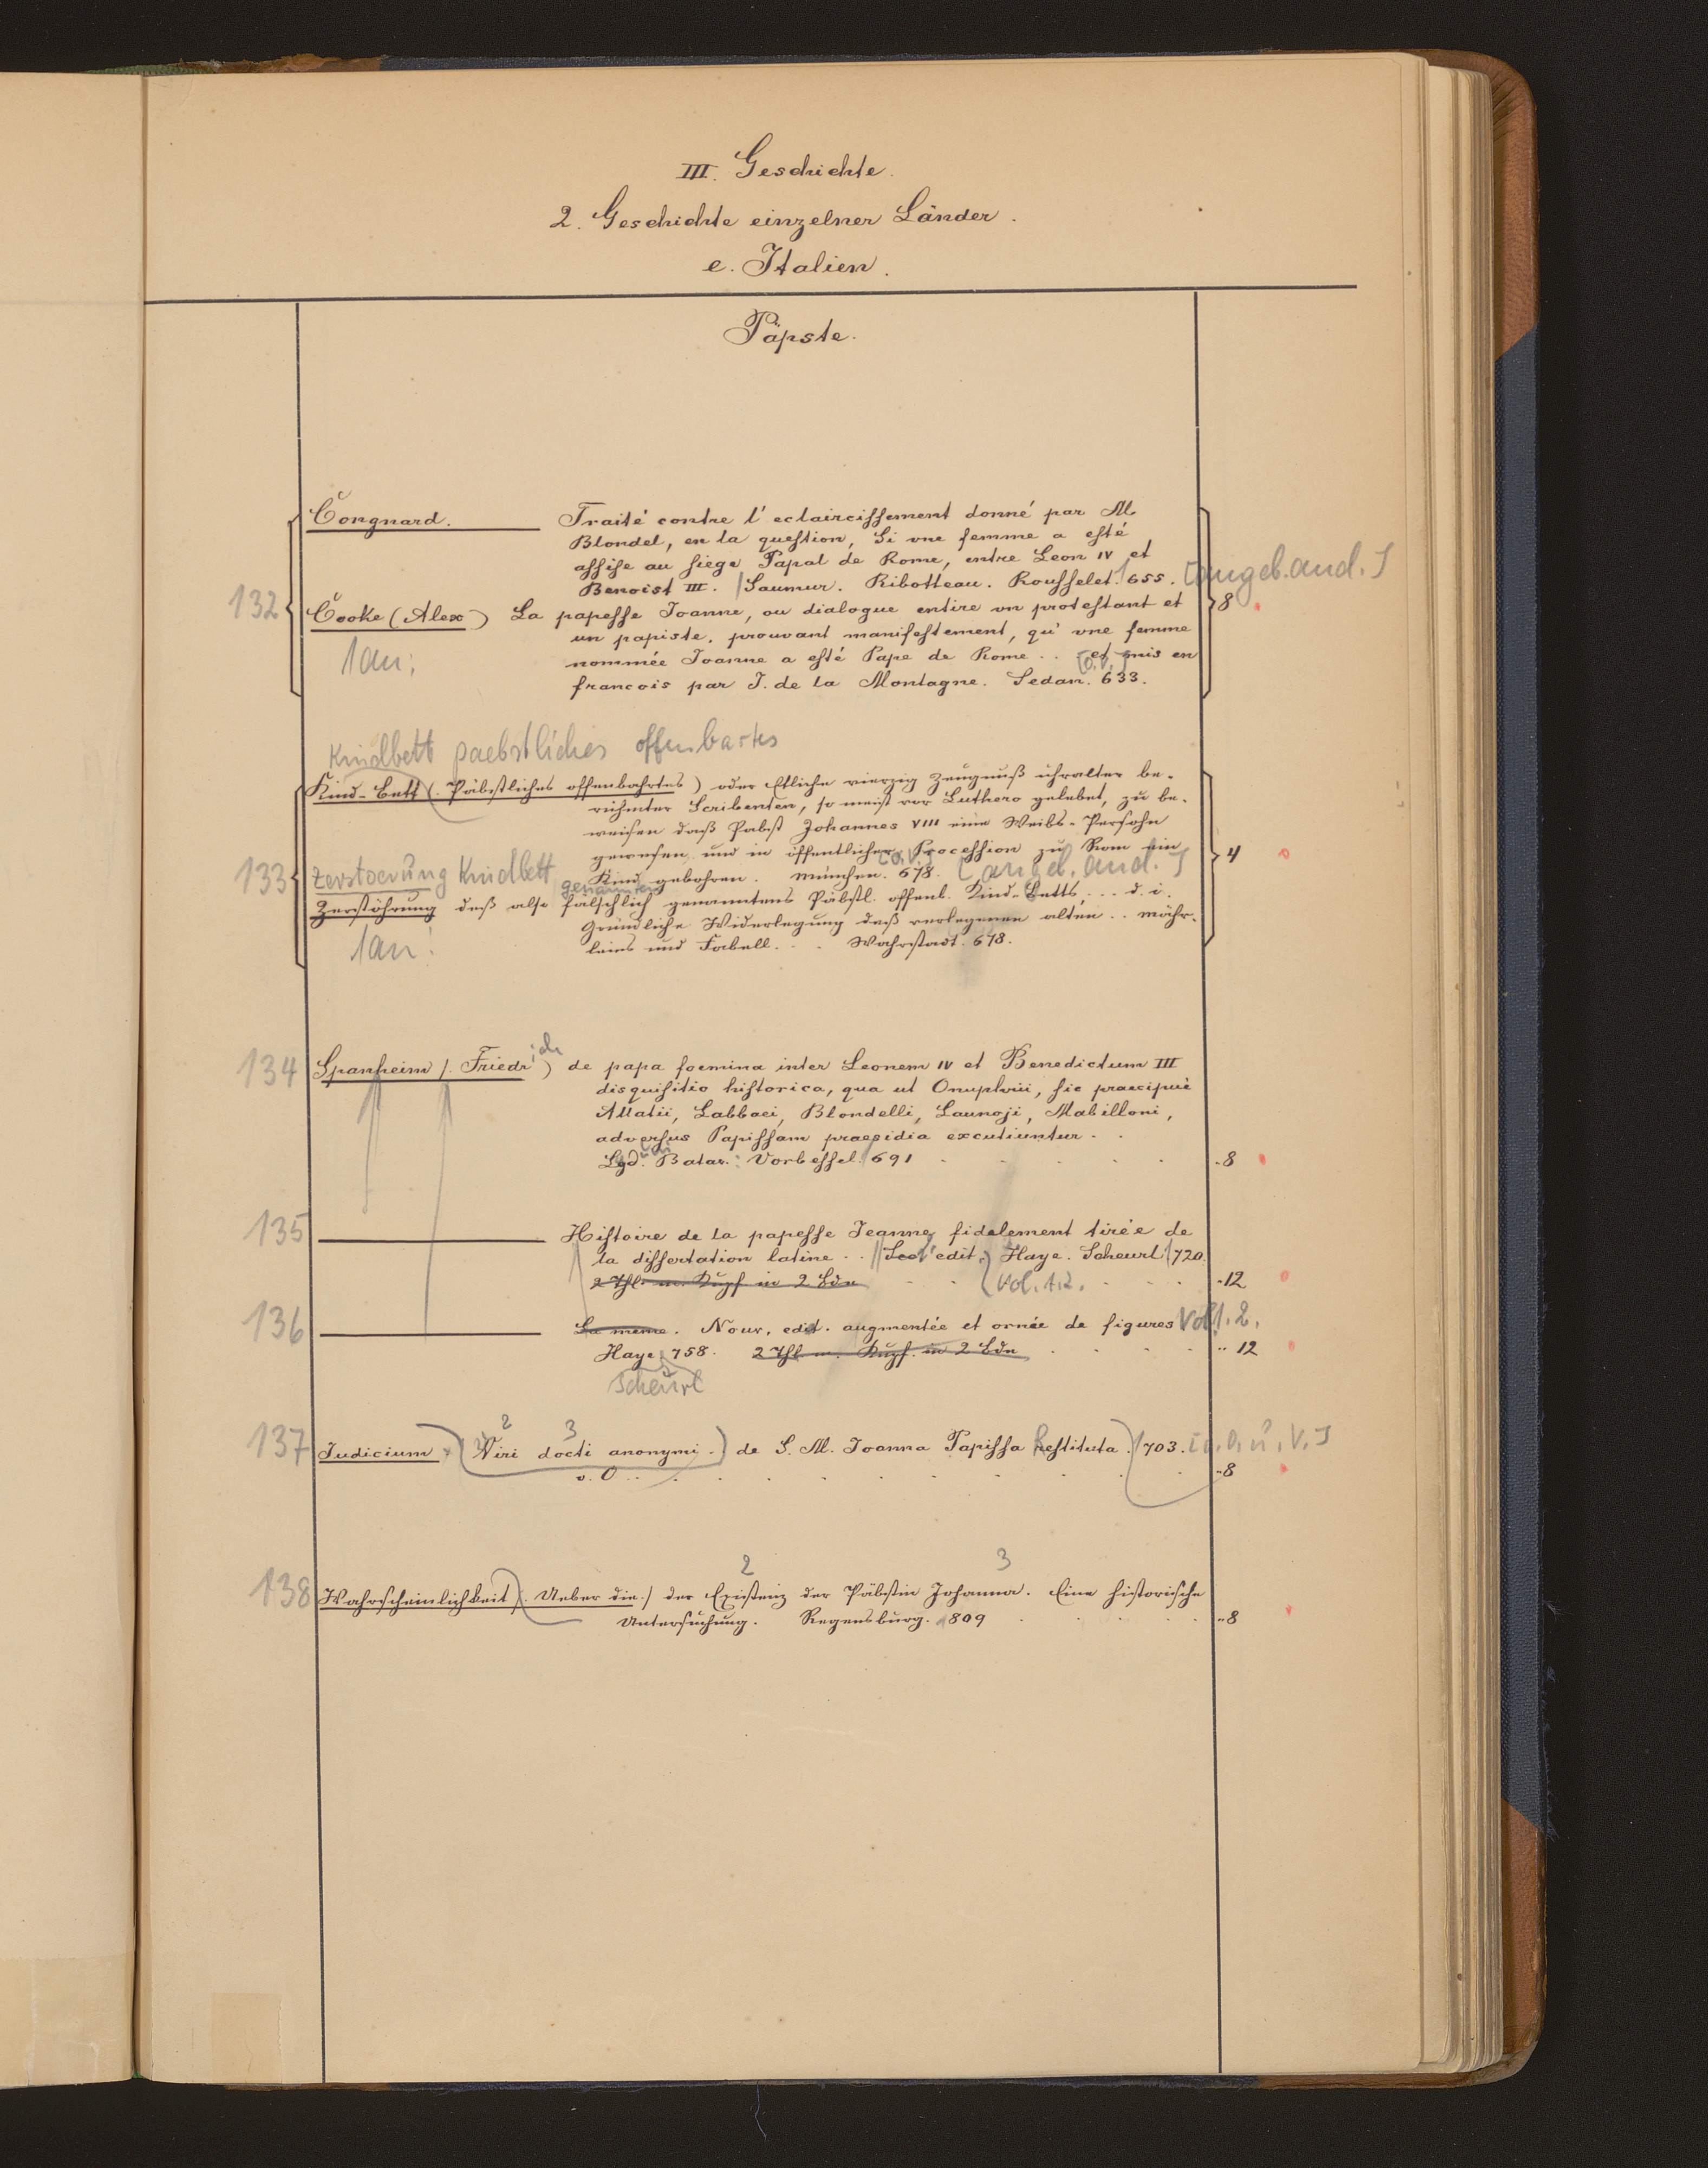 III. Geschichte.
2. Geschichte einzelner Länder.
e. Italien.
Päpste.
Congnard. Traité contre l'eclaircissement donné par M
Blondel, en la question, Si vne femme a esté
assise au siege Papal de Rome, entre Leon IV et
132 Benoist III. Saumur. Ribotteau. Rousselet. 655. [angeb. and.]
Cooke (Alex) La papesse Joanne, ou dialogue entire vn protestant et 8
un papiste, prouvant manifestement, qu'vne femme
1 an: nommée Joanne a esté Pape de Rome .. et mis en
[o. V.]
francois par J. de la Montagne. Sedan. 633.
Kindbett paebstliches offenbartes
Kind-Bett (Päbstliches offenbahrtes) oder Etliche vierzig Zeugnuß uhralter be-
rühmter Scribenten, so meist vor Luthero gelebet, zu be-
weisen daß Pabst Johannes VIII eine Weibs-Persohn
gewesen, und in öffentlicher Procession zu Rom ein 4
133 zerstoerung Kindbett Kind gebohren. München. 678. [o. V.] [angeb. and.]
genannten
Zerstöhrung deß also fälschlich genanntens Päbstl. offenb. Kind-Betts, ... d. i.
Gründliche Widerlegung deß verlegenen alten .. mähr-
1 an: leins und Fabell. . . Wahrstadt. 678.
134 Spanheim (Friedrich) de papa foemina inter Leonem IV et Benedictum III
disquisitio historica, qua ut Onuphrii, sic praecipuè
Allatii, Labbaei, Blondelli, Launoji, Mabilloni,
adversus Papissam praesidia excutiuntur. .
Lgd. Batav. Vorbessel. 691 . . . . . 8
135 Histoire de la papesse Jeanne fidelement tirée de
la dissertation latine .. Sec. edit. Haye. Scheurl. 720.
2 Thl. m. Kupf in 2 Bdn Vol. 1.2. 12
136 La meme. Nouv. edit. augmentée et ornée de figures Vol 1. 2.
Haye 758. 2 Thl. m. Kupf. in 2 Bdn 12
Scheurl
2 3
137 Judicium (Viri docti anonymi.) de S. M. Joanna Papissa Restituta. 703. [o. O. u. V.]
o. O. . . . 8
2 3
138 Wahrscheinlichkeit (Ueber die) der Existenz der Päbstin Johanna. Eine historische
Untersuchung. Regensburg. 809 . . . . 8